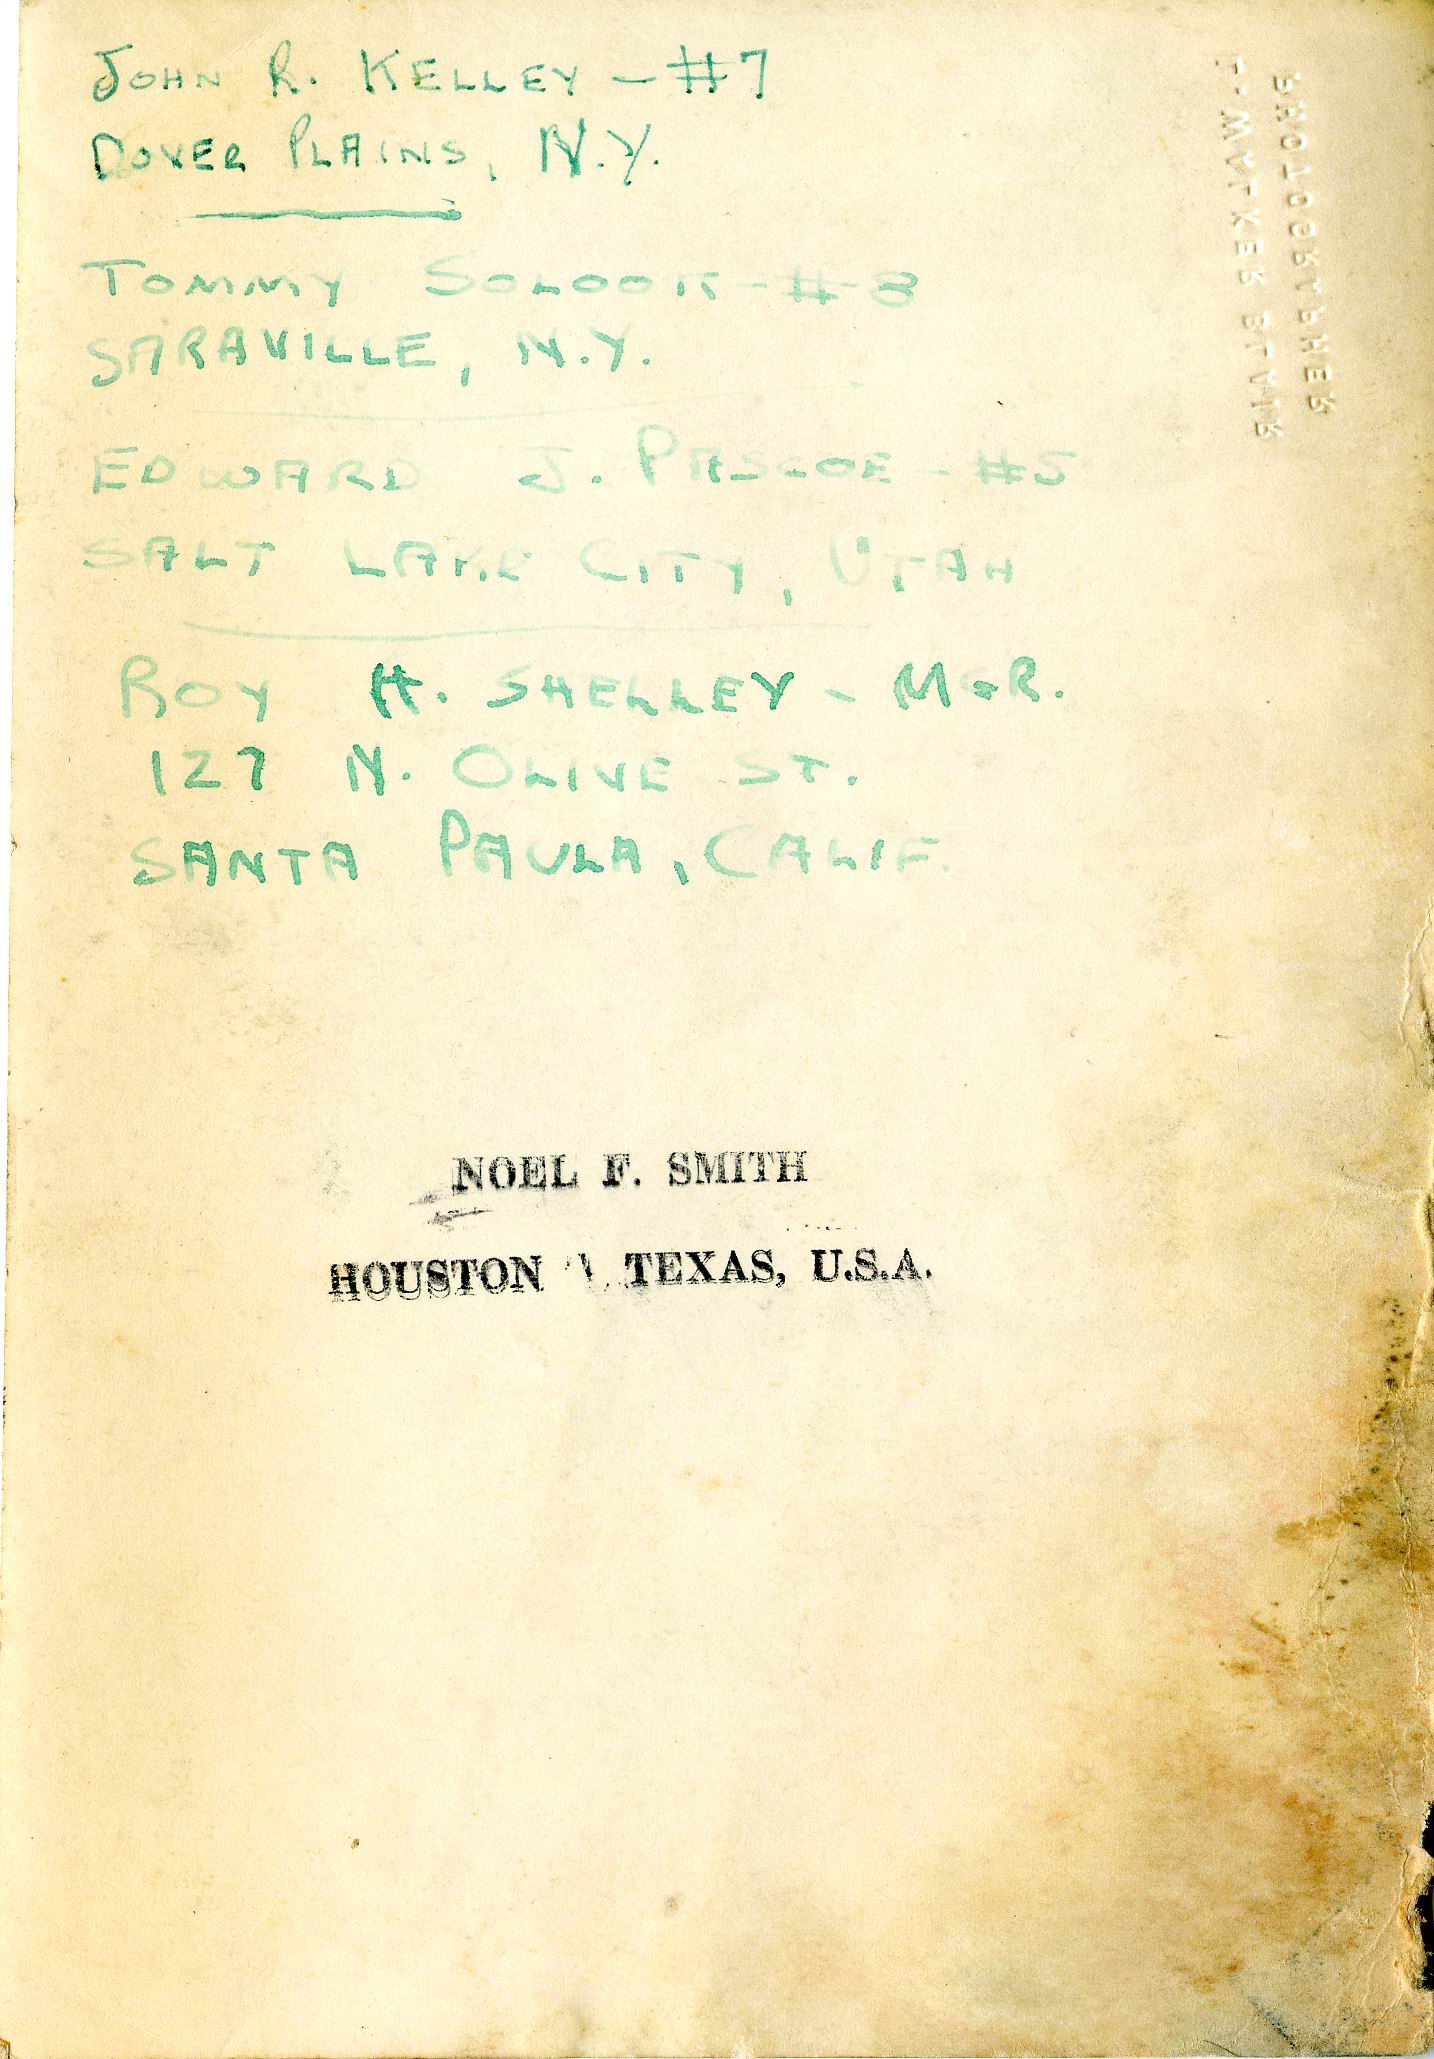 JOHN R. KELLEY - #7
DOVER PLAINS, N.Y.
TOMMY SOLOOK - #8
SARAVILLE, N.Y.
EDWARD J. PASCOE - #5
SALT LAKE CITY, UTAH
ROY H. SHELLEY - MGR.
127 N. OLIVE ST.
SANTA PAULA, CALIF.
NOEL F. SMITH
HOUSTON TEXAS, U.S.A.
WALKER BLAIR
PHOTOGRAPHER